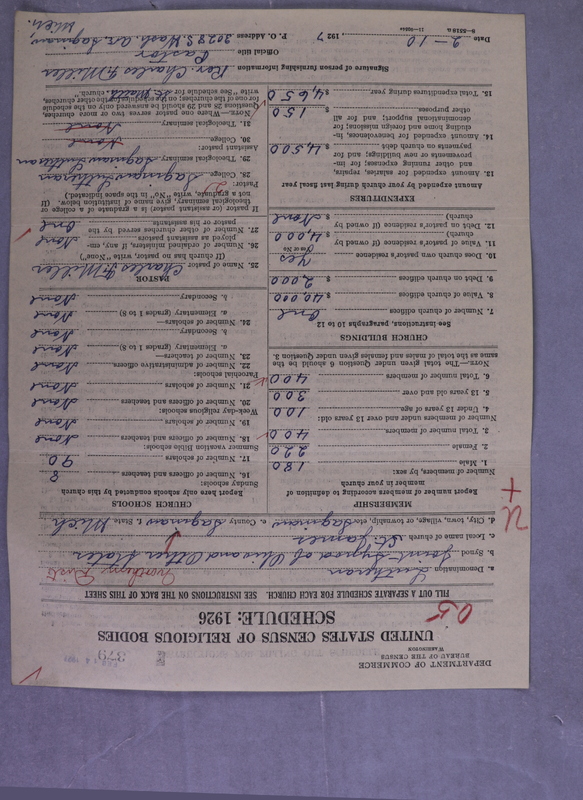 DEPARTMENT OF COMMERCE
BUREAU OF THE CENSUS
WASHINGTON
379
UNITED STATES CENSUS OF RELIGIOUS BODIES
SCHEDULE: 1926
05
FILL OUT A SEPARATE SCHEDULE FOR EACH CHURCH. SEE INSTRUCTIONS ON THE BACK OF THIS SHEET
a. Denomination Lutheran
b. Synod Joint Synod of Ohio and Other States
c. Local name of church St. James
d. City, town, village, or township, etc. Saginaw e. County Saginaw f. State Mich
MEMBERSHIP
Report number of members according to definition of member in your church
Number of members, by sex:
1. Male 180
2. Female 220
3. Total number of members 400
4. Under 13 years of age 100
5. 13 years old and over 300
6. Total number of members 400
NOTE.—The total given under Question 6 should be the same as the total of males and females given under Question 3.
CHURCH BUILDINGS
See Instructions, paragraphs 10 to 12
7. Number of church edifices One
8. Value of church edifices $ 40,000
9. Debt on church edifices $ 2,000
10. Does church own pastor's residence Yes
(Yes or No)
11. Value of pastor's residence (if owned by church) $ 4,000
12. Debt on pastor's residence (if owned by church) $ None
EXPENDITURES
Amount expended by your church during last fiscal year
13. Amount expended for salaries, repairs, and other running expenses; for improvements or new buildings; and for payments on church debt $ 4,500
14. Amount expended for benevolences, including home and foreign missions; for denominational support; and for all other purposes $ 150
15. Total expenditures during year $ 4,650
CHURCH SCHOOLS
Report here only schools conducted by this church
Sunday schools:
16. Number of officers and teachers 8
17. Number of scholars 90
Summer vacation Bible schools:
18. Number of officers and teachers None
19. Number of scholars None
Week-day religious schools:
20. Number of officers and teachers None
21. Number of scholars None
Parochial schools:
22. Number of administrative officers None
23. Number of teachers—
a. Elementary (grades 1 to 8) None
b. Secondary None
24. Number of scholars—
a. Elementary (grades 1 to 8) None
b. Secondary None
PASTOR
25. Name of pastor Charles F. Miller
(If church has no pastor, write "None")
26. Number of ordained ministers, if any, employed as assistant pastors None
27. Number of other churches served by the pastor or his assistants One
If pastor (or assistant pastor) is a graduate of a college or theological seminary, give name of institution below. (If not a graduate, write "No" in the space indicated.)
Pastor:
28. College
29. Theological seminary
Assistant pastor:
30. College None
31. Theological seminary None
NOTE.—Where one pastor serves two or more churches, Questions 28 and 29 should be answered only on the schedule for one of the churches; on the schedules for the other churches, write "See schedule for church."
Signature of person furnishing information Rev. Charles F. Miller
Official title Pastor
Date 2-10 1927 P. O. Address 2028 S. Wash. Av. Saginaw, Mich.